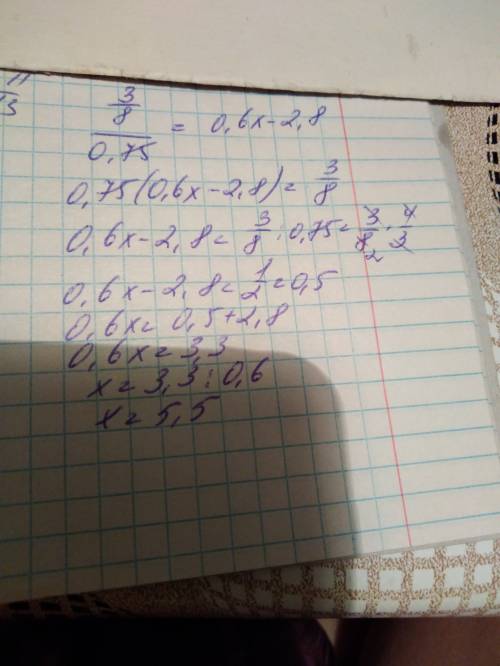 11
13
3
8
0,75 = 0,6x-2,8
0,75(0,6x-2,8)= 3/8
0,6x-2,8= 3/8 : 0,75= 3/8 · 4/3
2
0,6x-2,8= 1/2 =0,5
0,6x= 0,5+2,8
0,6x= 3,3
x= 3,3:0,6
x= 5,5